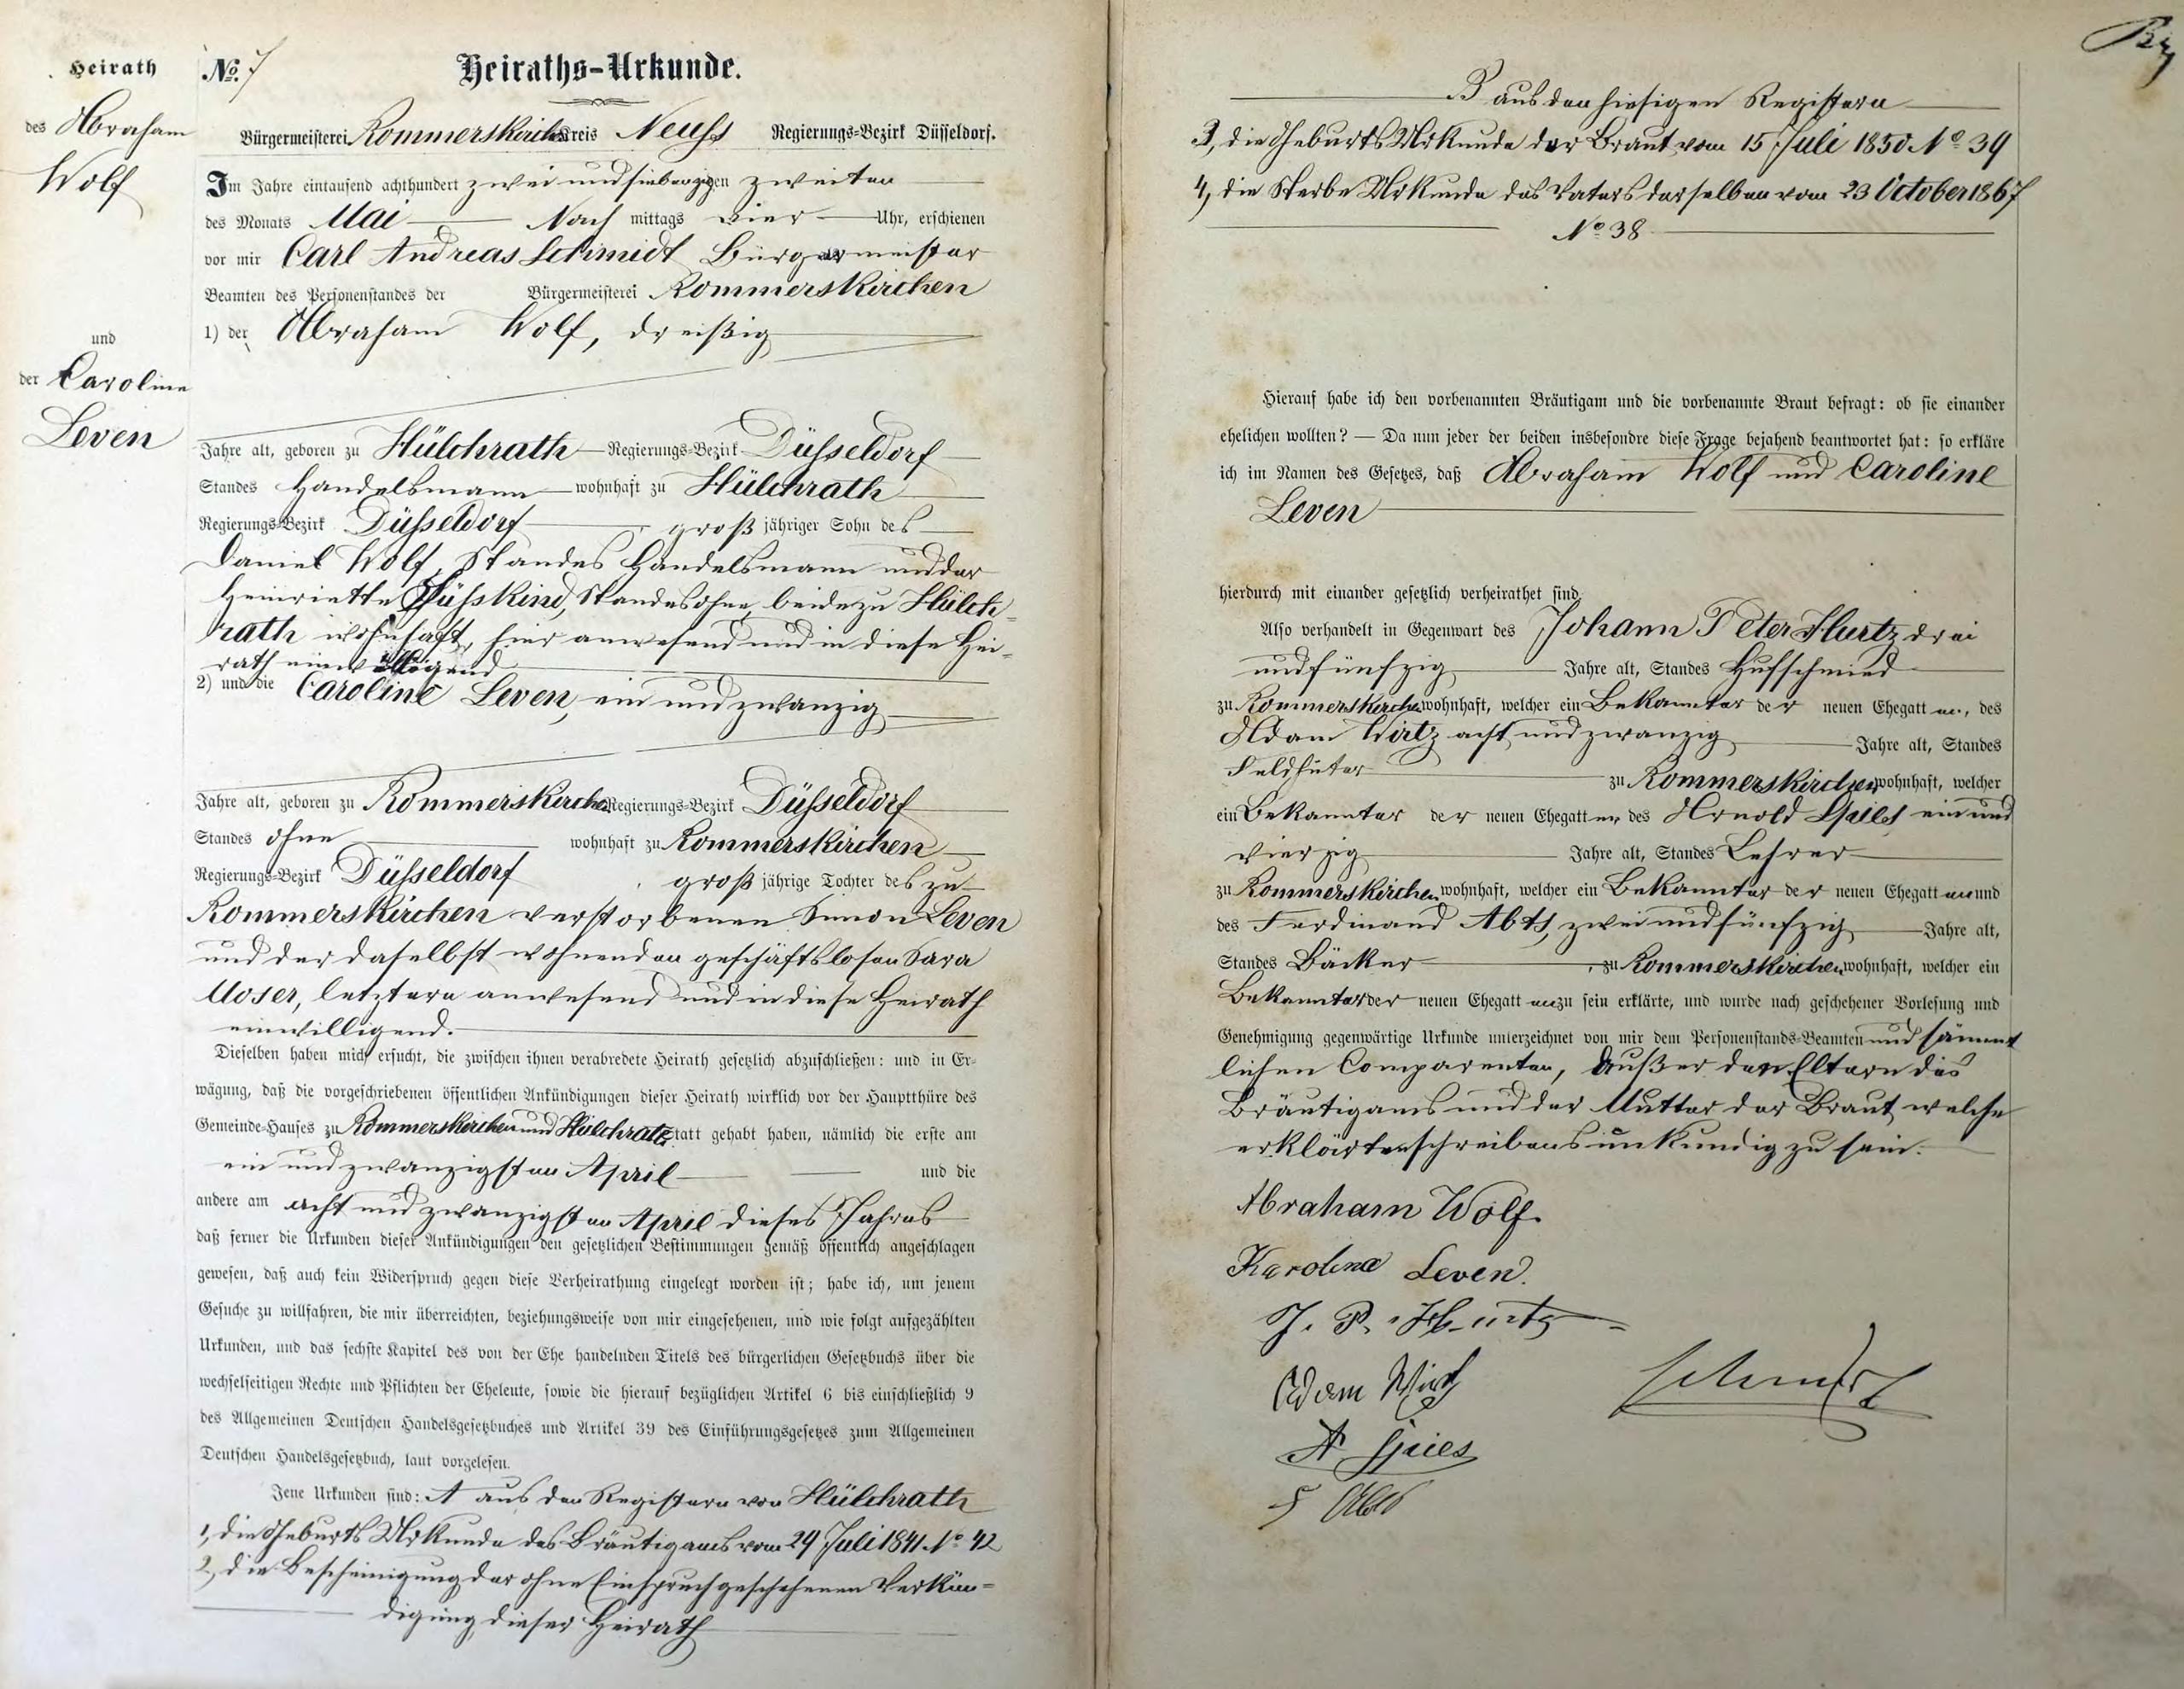 Heirath
des Abraham
Wolf
und
der Caroline
Leven
No. 7
Heiraths-Urkunde.
Bürgermeisterei Rommerskirchen Kreis Neuss Regierungs-Bezirk Düsseldorf.
Im Jahre eintausend achthundert zwei und siebenzig den zweiten
des Monats Mai Nach mittags vier Uhr, erschienen
vor mir Carl Andreas Schmidt Bürgermeister
Beamten des Personenstandes der Bürgermeisterei Rommerskirchen
1) der Abraham Wolf, dreißig
Jahre alt, geboren zu Hülchrath Regierungs-Bezirk Düsseldorf
Standes Handelsmann wohnhaft zu Hülchrath
Regierungs-Bezirk Düsseldorf groß jähriger Sohn des
Daniel Wolf, Standes Handelsmann und der
Henriette Süsskind, Standes ohne, beide zu Hülch-
rath wohnhaft, hier anwesend und in diese Hei-
rath einwilligend
2) und die Caroline Leven, ein und zwanzig
Jahre alt, geboren zu Rommerskirchen Regierungs-Bezirk Düsseldorf
Standes ohne wohnhaft zu Rommerskirchen
Regierungs-Bezirk Düsseldorf groß jährige Tochter des zu
Rommerskirchen verstorbenen Simon Leven
und der daselbst wohnenden geschäftslosen Sara
Moser, letztere anwesend und in diese Heirath
einwilligend.
Dieselben haben mich ersucht, die zwischen ihnen verabredete Heirath gesetzlich abzuschließen: und in Er-
wägung, daß die vorgeschriebenen öffentlichen Ankündigungen dieser Heirath wirklich vor der Hauptthüre des
Gemeinde-Hauses zu Rommerskirchen und Hülchrath statt gehabt haben, nämlich die erste am
ein und zwanzigsten April und die
andere am acht und zwanzigsten April dieses Jahres
daß ferner die Urkunden dieser Ankündigungen den gesetzlichen Bestimmungen gemäß öffentlich angeschlagen
gewesen, daß auch kein Widerspruch gegen diese Verheirathung eingelegt worden ist; habe ich, um jenem
Gesuche zu willfahren, die mir überreichten, beziehungsweise von mir eingesehenen, und wie folgt aufgezählten
Urkunden, und das sechste Kapitel des von der Ehe handelnden Titels des bürgerlichen Gesetzbuchs über die
wechselseitigen Rechte und Pflichten der Eheleute, sowie die hierauf bezüglichen Artikel 6 bis einschließlich 9
des Allgemeinen Deutschen Handelsgesetzbuches und Artikel 39 des Einführungsgesetzes zum Allgemeinen
Deutschen Handelsgesetzbuch, laut vorgelesen.
Jene Urkunden sind: A aus den Registern von Hülchrath
1, die Geburts Urkunde des Bräutigams vom 29 Juli 1841 No 42
2, die Bescheinigung der ohne Einspruch geschehenen Verkün-
digung dieser Heirath
B aus den hiesigen Registern
3, die Geburts Urkunde der Braut vom 15 Juli 1850 No 39
4, die Sterbe Urkunde des Vaters derselben vom 23 October 1867
No 38
Hierauf habe ich den vorbenannten Bräutigam und die vorbenannte Braut befragt: ob sie einander
ehelichen wollten? — Da nun jeder der beiden insbesondre diese Frage bejahend beantwortet hat: so erkläre
ich im Namen des Gesetzes, daß Abraham Wolf und Caroline
Leven
hierdurch mit einander gesetzlich verheirathet sind.
Also verhandelt in Gegenwart des Johann Peter Hurtz drei
und fünfzig Jahre alt, Standes Hufschmied
zu Rommerskirchen wohnhaft, welcher ein Bekannter der neuen Ehegatten, des
Adam Wirtz acht und zwanzig Jahre alt, Standes
Feldhüter zu Rommerskirchen wohnhaft, welcher
ein Bekannter der neuen Ehegatten des Arnold Spies ein und
vierzig Jahre alt, Standes Lehrer
zu Rommerskirchen wohnhaft, welcher ein Bekannter der neuen Ehegatten und
des Ferdinand Abts, zwei und fünfzig Jahre alt,
Standes Bäcker zu Rommerskirchen wohnhaft, welcher ein
Bekannter der neuen Ehegatten zu sein erklärte, und wurde nach geschehener Vorlesung und
Genehmigung gegenwärtige Urkunde unterzeichnet von mir dem Personenstands-Beamten und sämmt
lichen Comparenten, außer den Eltern des
Bräutigams und der Mutter der Braut, welche
erklärten schreibensunkundig zu sein.
Abraham Wolf.
Karolina Leven.
J. P. Hurtz
Adam Wirtz
Schmidt
A Spies
F Abts